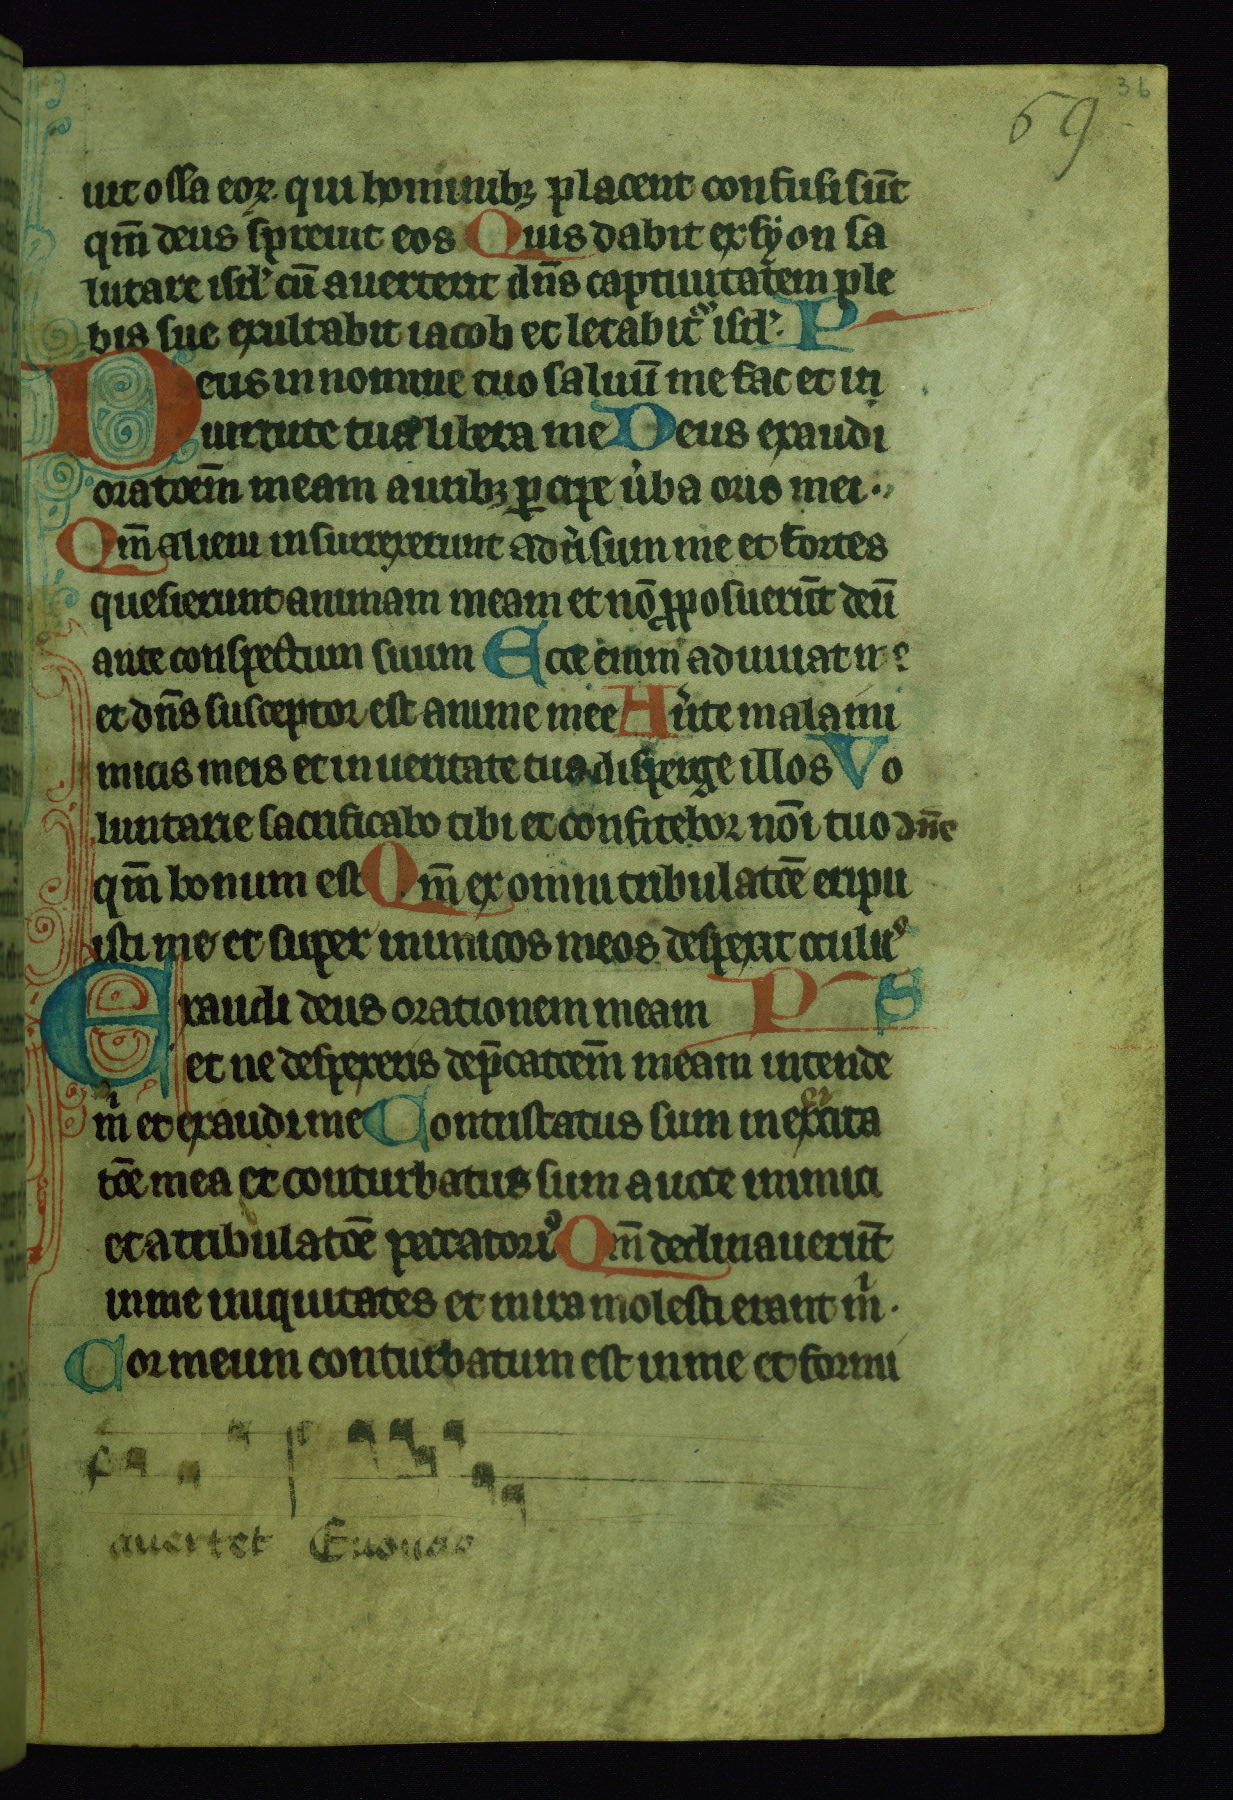 36
69
uit ossa eoꝝ. qui hominibꝫ placent confusi sūt
qm̄ deus spreuit eos Quis dabit ex syon sa
lutare isrl' cū auerterit dn̄s captiuitatem ple
bis sue exultabit iacob et letabit᷑ isrl'. P
Deus in nomine tuo saluū me fac et in
uirtute tua libera me Deus exaudi
oratōem̄ meam auribꝫ ꝑcipe ùba oris mei.
Qm̄ alieni insurrexerunt adu̓sum me et fortes
quesierunt animam meam et nō ꝓposuerūt deū
ante conspectum suum Ecce enim adiuuat me
et dn̄s susceptor est anime mee Au̓te mala ini
micis meis et in ueritate tua disperge illos Vo
luntarie sacrificabo tibi et confitebor nōi tuo dn̄e
qm̄ bonum est Qm̄ ex omni tribulatōe eripu
isti me et super inimicos meos despexit oculuˢ
Exaudi deus orationem meam PS
et ne despexeris dep̄catōem̄ meam intende
m̍ et exaudi me Contristatus sum in exercita
tōe mea et conturbatus sum a uoce inimici
et a tribulatōe peccatoriˢ Qm̄ declinauerūt
in me iniquitates et in ira molesti erant m̍.
Cor meum conturbatum est in me et formi
auertet Euouae